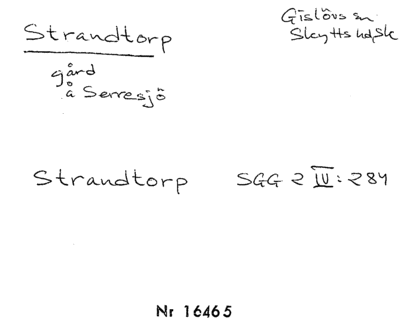 Strandtorp
Gislövs sn
Skytts hd, Sk
gård
å Serresjö
Strandtorp SGG 2 IV: 284
Nr 16465